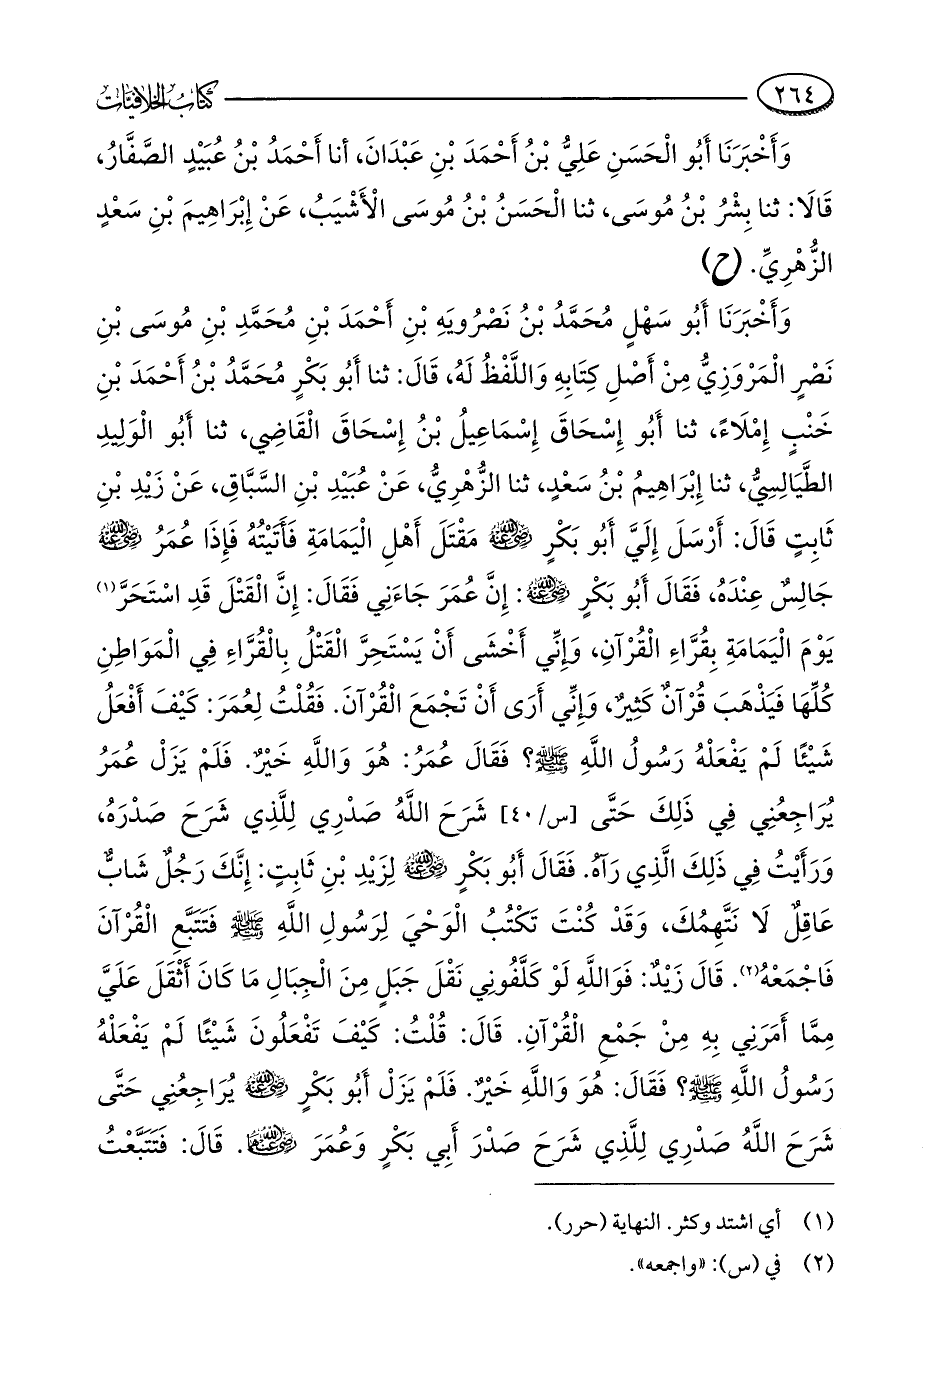 ٢٦٤ كتاب الخلافيات
وَأَخْبَرَنَا أَبُو الْحَسَنِ عَلِيُّ بْنُ أَحْمَدَ بْنِ عَبْدَانَ، أنا أَحْمَدُ بْنُ عُبَيْدٍ الصَّفَّارُ،
قَالَا: ثنا بِشْرُ بْنُ مُوسَى، ثنا الْحَسَنُ بْنُ مُوسَى الْأَشْيَبُ، عَنْ إِبْرَاهِيمَ بْنِ سَعْدٍ
الزُّهْرِيِّ. (ح)
وَأَخْبَرَنَا أَبُو سَهْلٍ مُحَمَّدُ بْنُ نَصْرُويَهِ بْنِ أَحْمَدَ بْنِ مُحَمَّدِ بْنِ مُوسَى بْنِ
نَصْرٍ الْمَرْوَزِيُّ مِنْ أَصْلِ كِتَابِهِ وَاللَّفْظُ لَهُ، قَالَ: ثنا أَبُو بَكْرٍ مُحَمَّدُ بْنُ أَحْمَدَ بْنِ
خَنْبٍ إِمْلَاءً، ثنا أَبُو إِسْحَاقَ إِسْمَاعِيلُ بْنُ إِسْحَاقَ الْقَاضِي، ثنا أَبُو الْوَلِيدِ
الطَّيَالِسِيُّ، ثنا إِبْرَاهِيمُ بْنُ سَعْدٍ، ثنا الزُّهْرِيُّ، عَنْ عُبَيْدِ بْنِ السَّبَّاقِ، عَنْ زَيْدِ بْنِ
ثَابِتٍ قَالَ: أَرْسَلَ إِلَيَّ أَبُو بَكْرٍ رضي الله عنه مَقْتَلَ أَهْلِ الْيَمَامَةِ فَأَتَيْتُهُ فَإِذَا عُمَرُ رضي الله عنه
جَالِسٌ عِنْدَهُ، فَقَالَ أَبُو بَكْرٍ رضي الله عنه: إِنَّ عُمَرَ جَاءَنِي فَقَالَ: إِنَّ الْقَتْلَ قَدِ اسْتَحَرَّ(١)
يَوْمَ الْيَمَامَةِ بِقُرَّاءِ الْقُرْآنِ، وَإِنِّي أَخْشَى أَنْ يَسْتَحِرَّ الْقَتْلُ بِالْقُرَّاءِ فِي الْمَوَاطِنِ
كُلِّهَا فَيَذْهَبَ قُرْآنٌ كَثِيرٌ، وَإِنِّي أَرَى أَنْ تَجْمَعَ الْقُرْآنَ. فَقُلْتُ لِعُمَرَ: كَيْفَ أَفْعَلُ
شَيْئًا لَمْ يَفْعَلْهُ رَسُولُ اللَّهِ ﷺ؟ فَقَالَ عُمَرُ: هُوَ وَاللَّهِ خَيْرٌ. فَلَمْ يَزَلْ عُمَرُ
يُرَاجِعُنِي فِي ذَلِكَ حَتَّى [س/٤٠] شَرَحَ اللَّهُ صَدْرِي لِلَّذِي شَرَحَ صَدْرَهُ،
وَرَأَيْتُ فِي ذَلِكَ الَّذِي رَآهُ. فَقَالَ أَبُو بَكْرٍ رضي الله عنه لِزَيْدِ بْنِ ثَابِتٍ: إِنَّكَ رَجُلٌ شَابٌّ
عَاقِلٌ لَا نَتَّهِمُكَ، وَقَدْ كُنْتَ تَكْتُبُ الْوَحْيَ لِرَسُولِ اللَّهِ ﷺ فَتَتَبَّعِ الْقُرْآنَ
فَاجْمَعْهُ(٢). قَالَ زَيْدٌ: فَوَاللَّهِ لَوْ كَلَّفُونِي نَقْلَ جَبَلٍ مِنَ الْجِبَالِ مَا كَانَ أَثْقَلَ عَلَيَّ
مِمَّا أَمَرَنِي بِهِ مِنْ جَمْعِ الْقُرْآنِ. قَالَ: قُلْتُ: كَيْفَ تَفْعَلُونَ شَيْئًا لَمْ يَفْعَلْهُ
رَسُولُ اللَّهِ ﷺ؟ فَقَالَ: هُوَ وَاللَّهِ خَيْرٌ. فَلَمْ يَزَلْ أَبُو بَكْرٍ رضي الله عنه يُرَاجِعُنِي حَتَّى
شَرَحَ اللَّهُ صَدْرِي لِلَّذِي شَرَحَ صَدْرَ أَبِي بَكْرٍ وَعُمَرَ رضي الله عنهما. قَالَ: فَتَتَبَّعْتُ
(١) أي اشتد وكثر. النهاية (حرر).
(٢) في (س): «واجمعه».